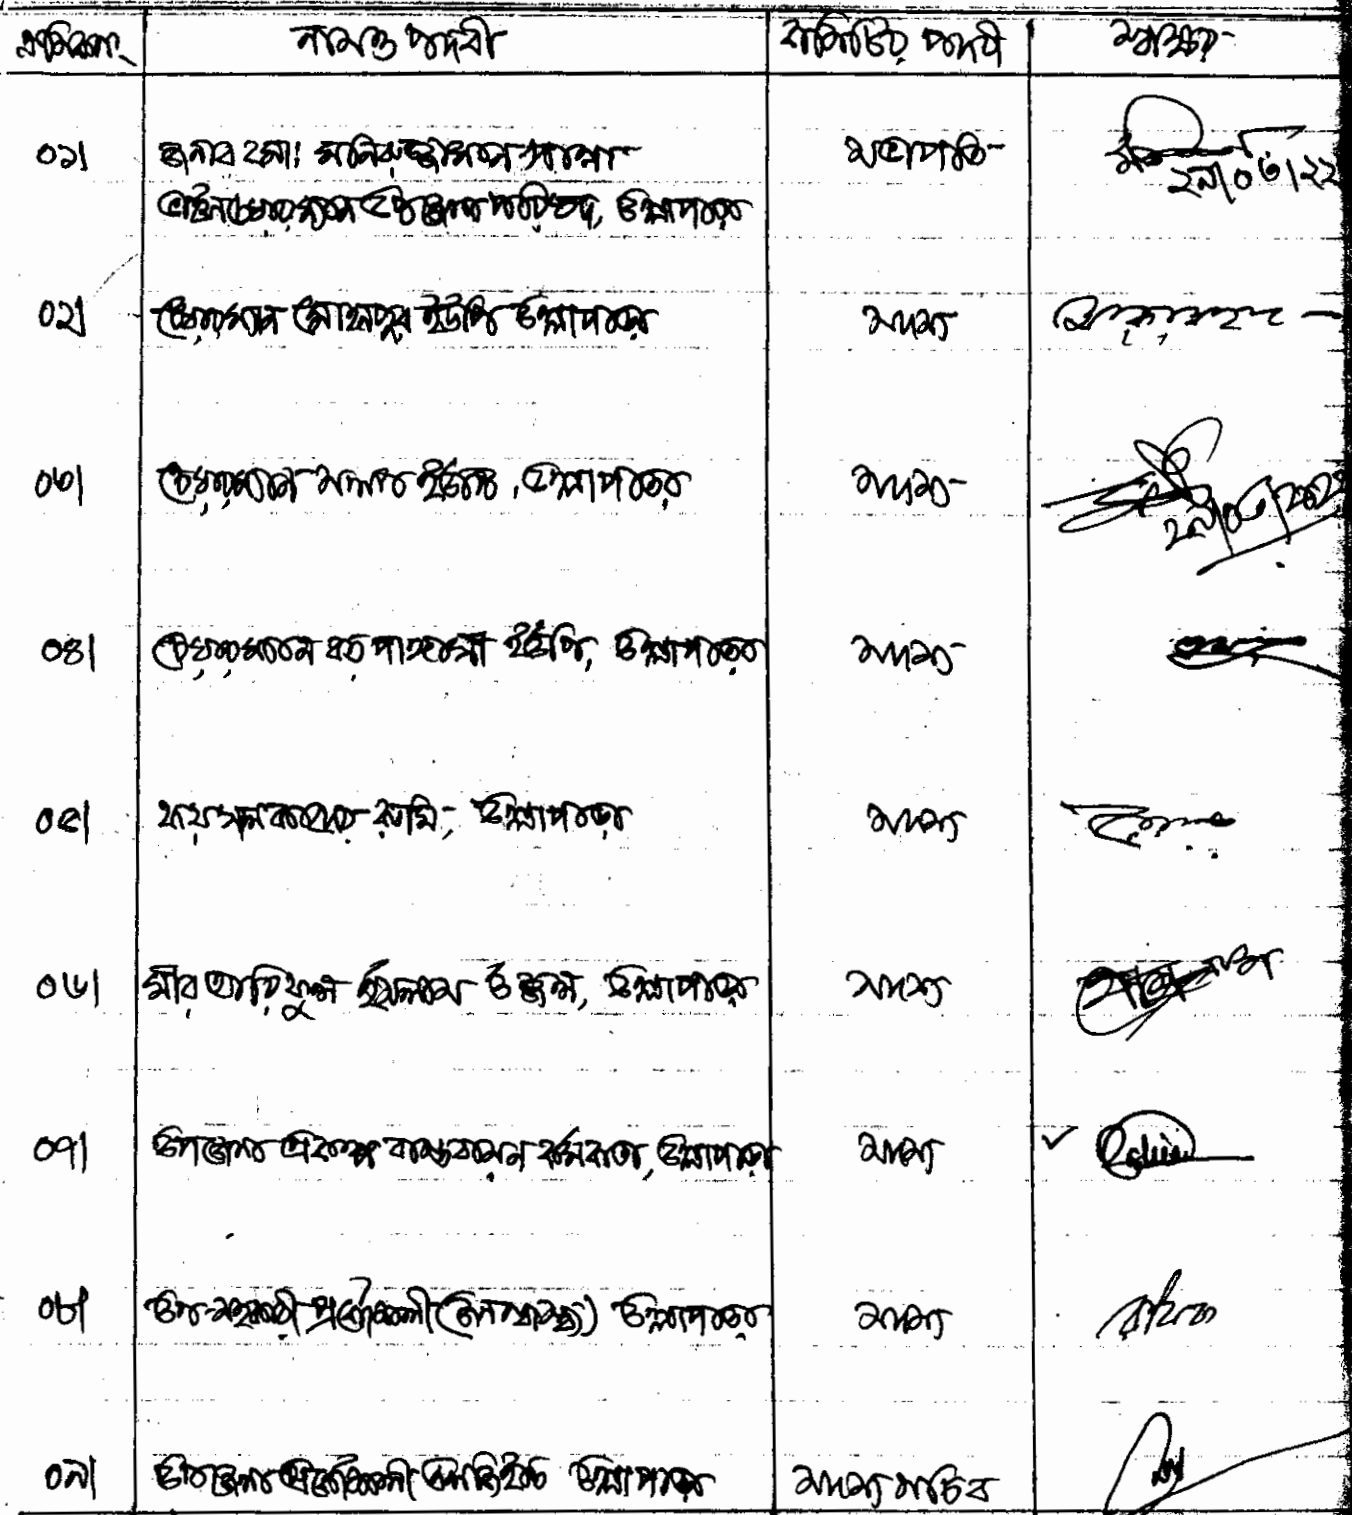 ক্রমিকনং নাম ও পদবী কমিটির পদবী স্বাক্ষর
০১। জনাব মোঃ মনিরুজ্জামান পান্না সভাপতি
ভাইস চেয়ারম্যান উপজেলা পরিষদ, উল্লাপাড়া ২৯/০৩/২২
০২। চেয়ারম্যান মোহনপুর ইউপি উল্লাপাড়া সদস্য
০৩। চেয়ারম্যান সলপ ইউপি, উল্লাপাড়া সদস্য ২৯/০৩/২০২২
০৪। চেয়ারম্যান বড় পাঙ্গাসী ইউপি, উল্লাপাড়া সদস্য
০৫। ফয়সাল কাদের রুমি, উল্লাপাড়া সদস্য
০৬। মীর আরিফুল ইসলাম উজ্জল, উল্লাপাড়া সদস্য
০৭। উপজেলা প্রকল্প বাস্তবায়ন কর্মকর্তা, উল্লাপাড়া সদস্য
০৮। উপ-সহকারী প্রকৌশলী (জনস্বাস্থ্য) উল্লাপাড়া সদস্য
০৯। উপজেলা প্রকৌশলী এলজিইডি উল্লাপাড়া সদস্য সচিব